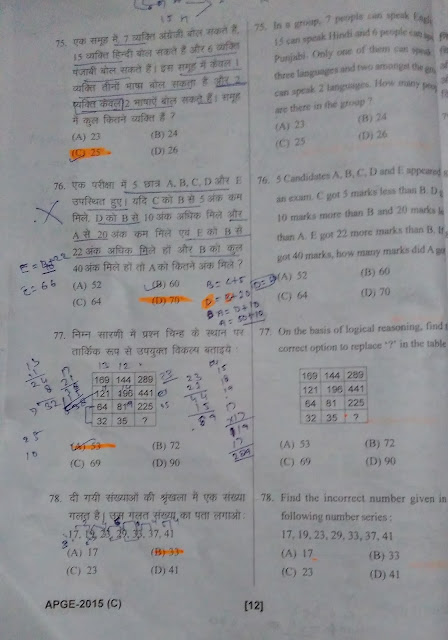 15 n
75. एक समूह में 7 व्यक्ति अंग्रेजी बोल सकते हैं,
15 व्यक्ति हिन्दी बोल सकते हैं और 6 व्यक्ति
पंजाबी बोल सकते हैं। इस समूह में केवल 1
व्यक्ति तीनों भाषा बोल सकता है और 2
व्यक्ति केवल 2 भाषाएं बोल सकते हैं। समूह
में कुल कितने व्यक्ति हैं ?
(A) 23 (B) 24
(C) 25 (D) 26
76. एक परीक्षा में 5 छात्र A, B, C, D और E
उपस्थित हुए। यदि C को B से 5 अंक कम
मिले, D को B से 10 अंक अधिक मिले और
A से 20 अंक कम मिले एवं E को B से
22 अंक अधिक मिले हों और B को कुल
40 अंक मिले हों तो A को कितने अंक मिले ?
(A) 52 (B) 60
(C) 64 (D) 70
E = B+22
E = 66
B = C+5
77. निम्न सारणी में प्रश्न चिन्ह के स्थान पर
तार्किक रूप से उपयुक्त विकल्प बताइये :
13 12
169 144 289
121 196 441
64 81 225
32 35 ?
23
(A) 53 (B) 72
(C) 69 (D) 90
78. दी गयी संख्याओं की श्रृंखला में एक संख्या
गलत है। उस गलत संख्या का पता लगाओ :
17, 19, 23, 29, 33, 37, 41
(A) 17 (B) 33
(C) 23 (D) 41
APGE-2015 (C)
[12]
75. In a group, 7 people can speak Engli
15 can speak Hindi and 6 people can
Punjabi. Only one of them can speak
three languages and two amongst the
can speak 2 languages. How many peop
are there in the group ?
(A) 23 (B) 24
(C) 25 (D) 26
76. 5 Candidates A, B, C, D and E appeared
an exam. C got 5 marks less than B. D g
10 marks more than B and 20 marks
than A. E got 22 more marks than B. If
got 40 marks, how many marks did A go
(A) 52 (B) 60
(C) 64 (D) 70
77. On the basis of logical reasoning, find t
correct option to replace '?' in the table
169 144 289
121 196 441
64 81 225
32 35 ?
(A) 53 (B) 72
(C) 69 (D) 90
78. Find the incorrect number given in
following number series :
17, 19, 23, 29, 33, 37, 41
(A) 17 (B) 33
(C) 23 (D) 41